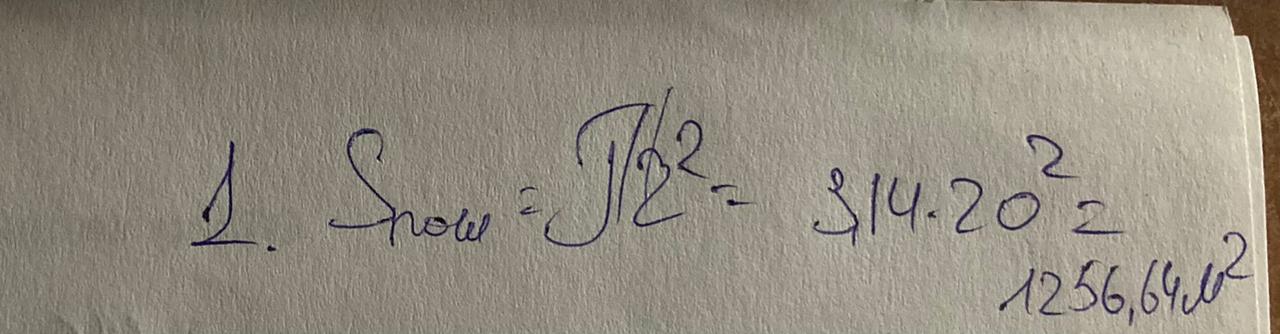 1. Sпош = πr² = 3,14·20² =
1256,64м²